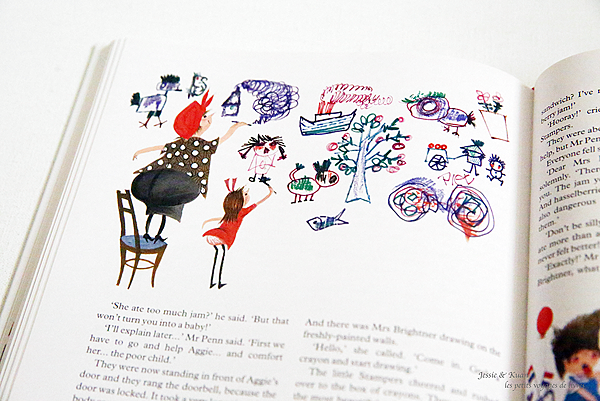 'She ate too much jam?' he said. 'But that
won't turn you into a baby!'
'I'll explain later...' Mr Penn said. 'First we
have to go and help Aggie... and comfort
her... the poor child.'
They were now standing in front of Aggie's
door and they rang the doorbell, because the
door was locked. It took a
And there was Mrs Brightner drawing on the
freshly-painted walls.
'Hello,' she called. 'Come in.
crayon and start drawing.'
The little Stampers cheered and
over to the box of crayons.
the most
sandwich? I've
berry jam!'
'Hooray!' cried
Stampers.
They were about
help, but Mr Penn
Everyone fell
solemnly. 'There
'Dear Mrs
you. The jam
And hasselberries
also dangerous
them.'
'Don't be silly
ate more than a
never felt better!
'Exactly!' Mr
Brightner, what
Jessie &
les petits